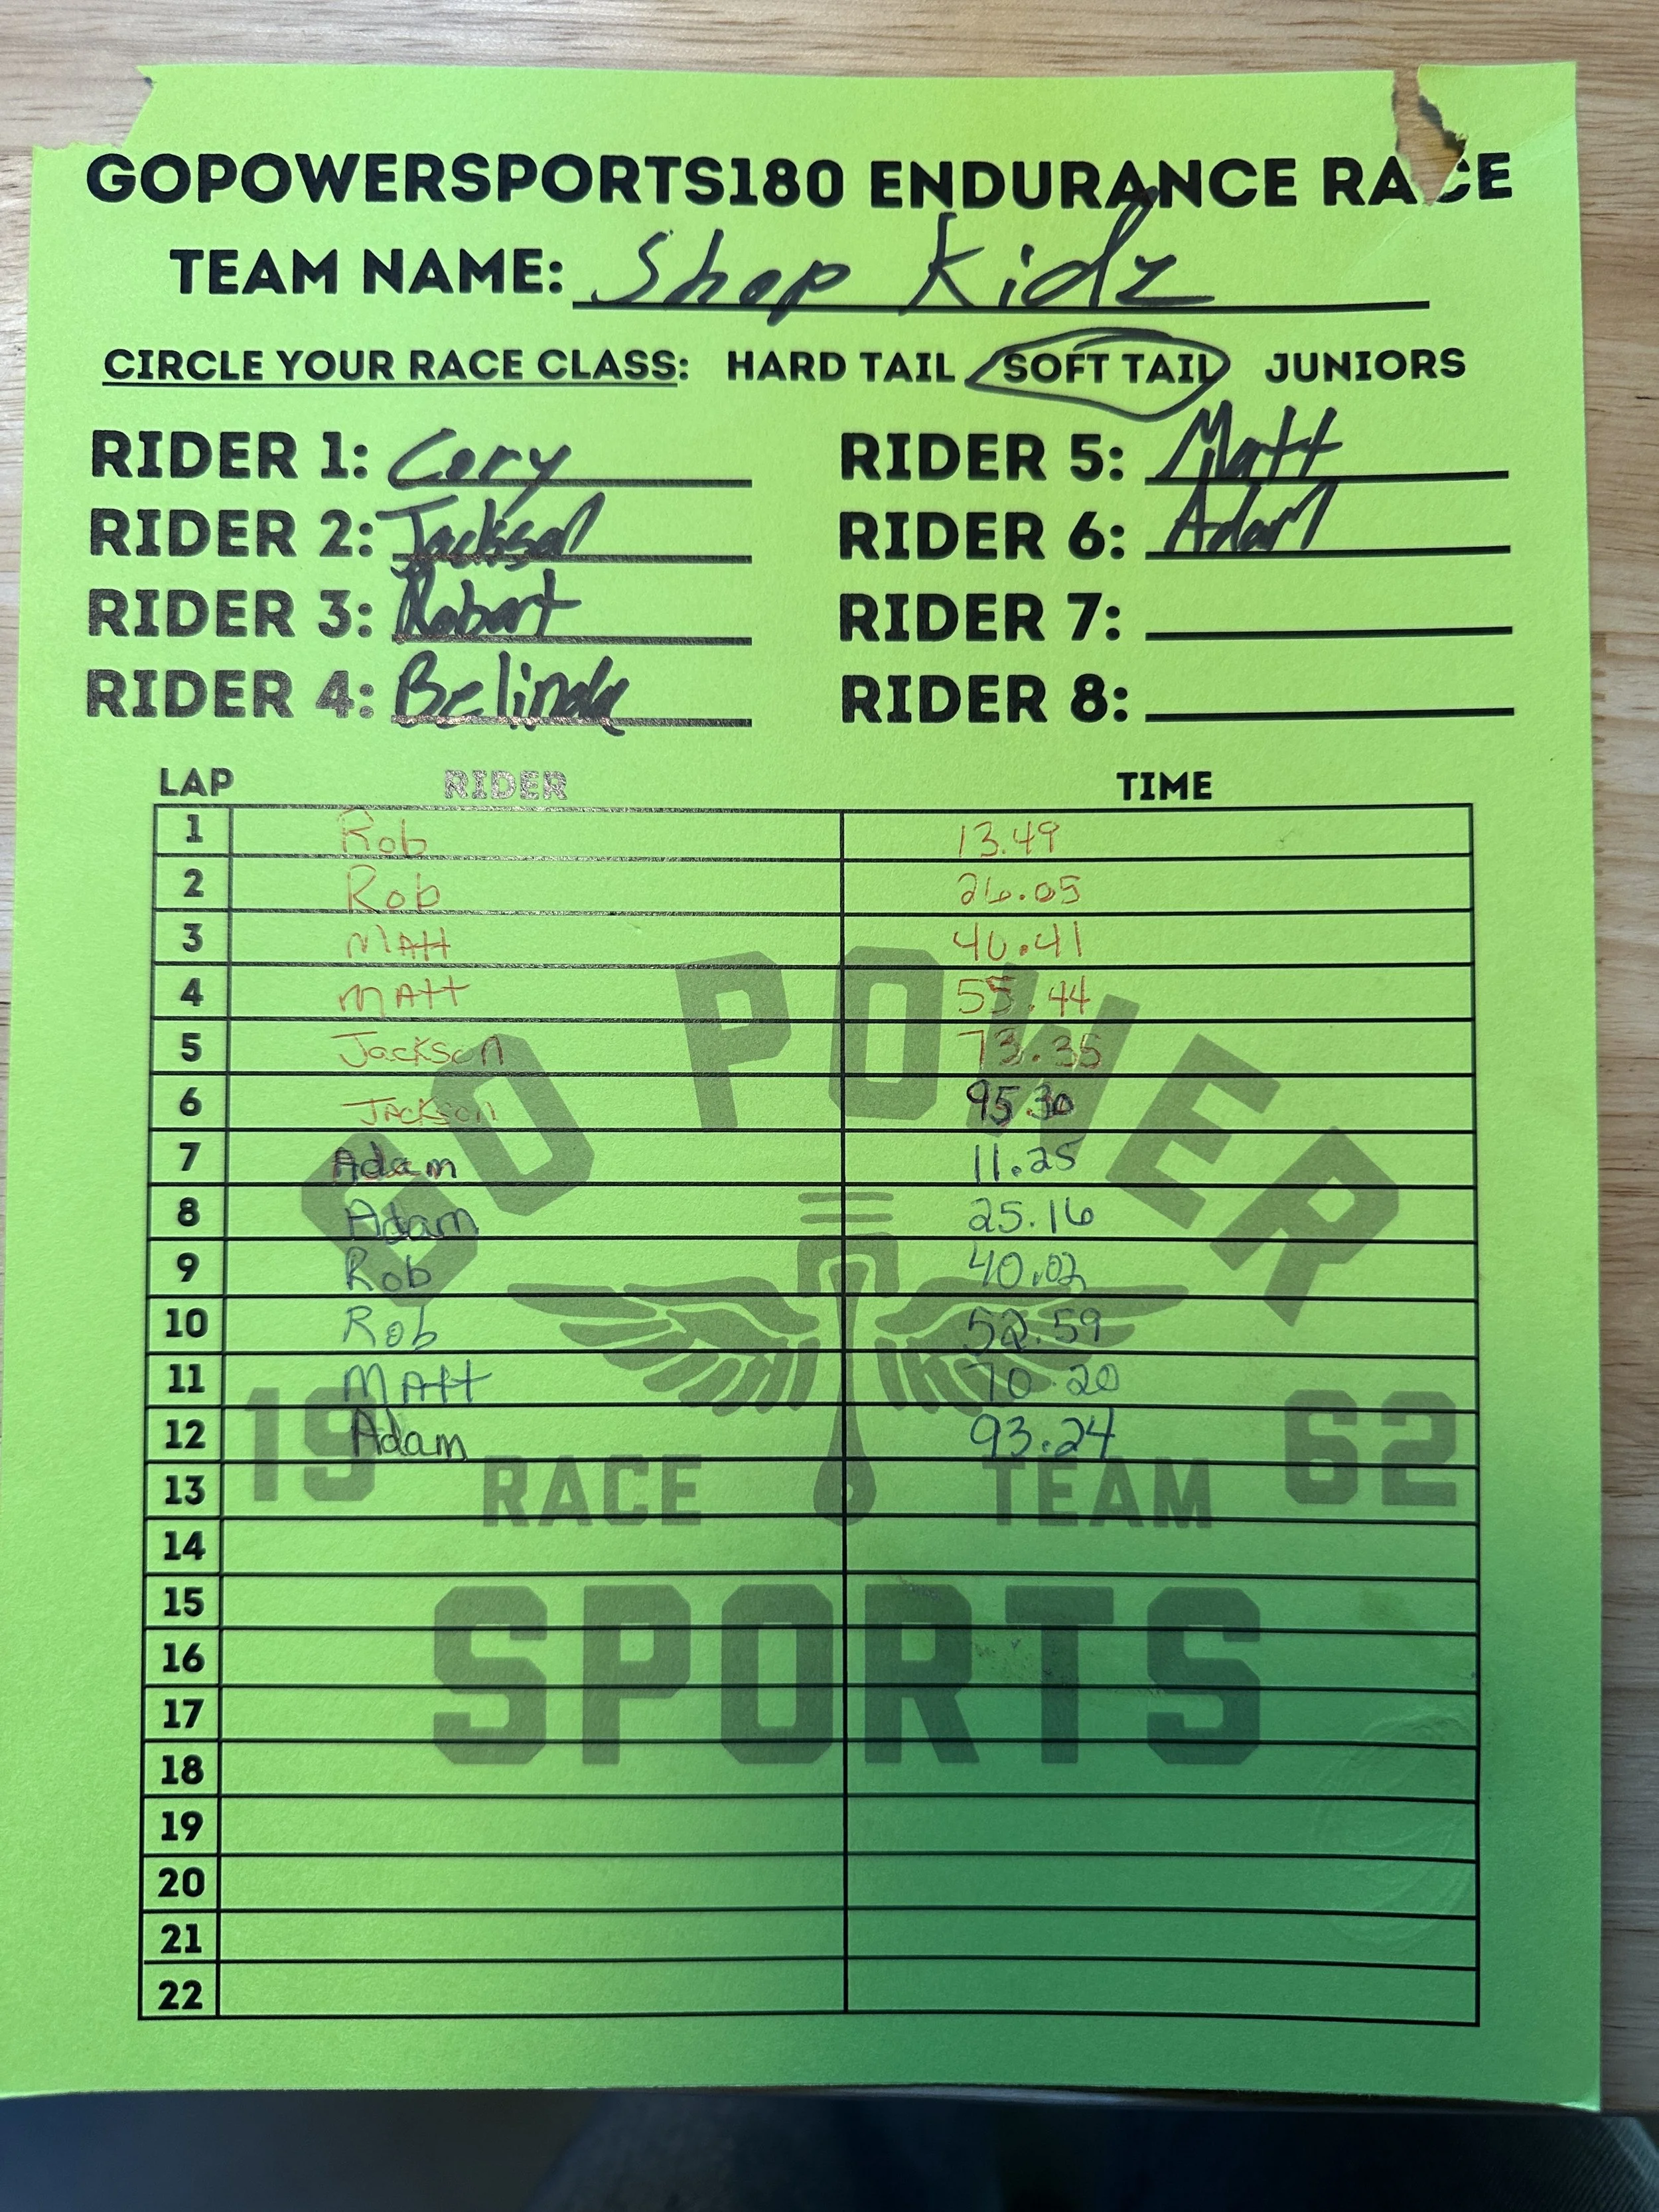 GOPOWERSPORTS180 ENDURANCE RACE
TEAM NAME: Shop Kidz
CIRCLE YOUR RACE CLASS: HARD TAIL SOFT TAIL JUNIORS
RIDER 1: Cory RIDER 5: Matt
RIDER 2: Jackson RIDER 6: Adam
RIDER 3: Robert RIDER 7:
RIDER 4: Belinda RIDER 8:
LAP RIDER TIME
1 Rob 13.49
2 Rob 26.05
3 MAtt 40.41
4 MAtt 55.44
5 Jackson 73.35
6 JAckson 95.30
7 Adam 11.25
8 Adam 25.16
9 Rob 40.02
10 Rob 52.59
11 MAtt 70.20
12 Adam 93.24
13
14
15
16
17
18
19
20
21
22
GO POWER
19 62
RACE TEAM
SPORTS